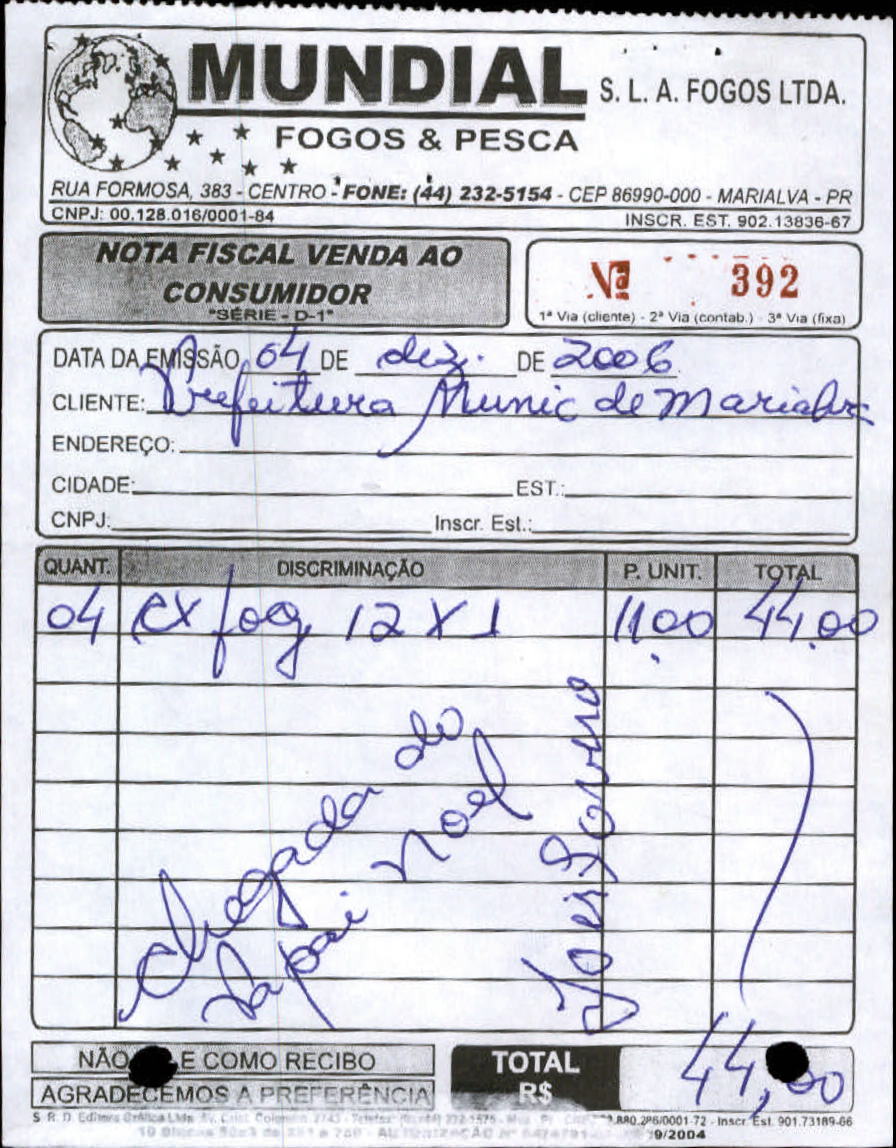 MUNDIAL S. L. A. FOGOS LTDA.
FOGOS & PESCA
RUA FORMOSA, 383 - CENTRO - FONE: (44) 232-5154 - CEP 86990-000 - MARIALVA - PR
CNPJ: 00.128.016/0001-84 INSCR. EST. 902.13836-67
NOTA FISCAL VENDA AO
CONSUMIDOR
"SÉRIE - D-1"
Vª 392
1ª Via (cliente) - 2ª Via (contab.) - 3ª Via (fixa)
DATA DA EMISSÃO 04 DE dez. DE 2006
CLIENTE: Prefeitura Munic de Marialva
ENDEREÇO:
CIDADE: EST.:
CNPJ: Inscr. Est.:
QUANT. DISCRIMINAÇÃO P. UNIT. TOTAL
04 CX fog 12 X 1 11.00 44.00
chegada do
Papai Noel
NÃO E COMO RECIBO
AGRADECEMOS A PREFERÊNCIA
TOTAL
R$ 44,00
S. R. D. Editora Gráfica Ltda. 880.286/0001-72 - Inscr. Est. 901.73189-66
9/2004